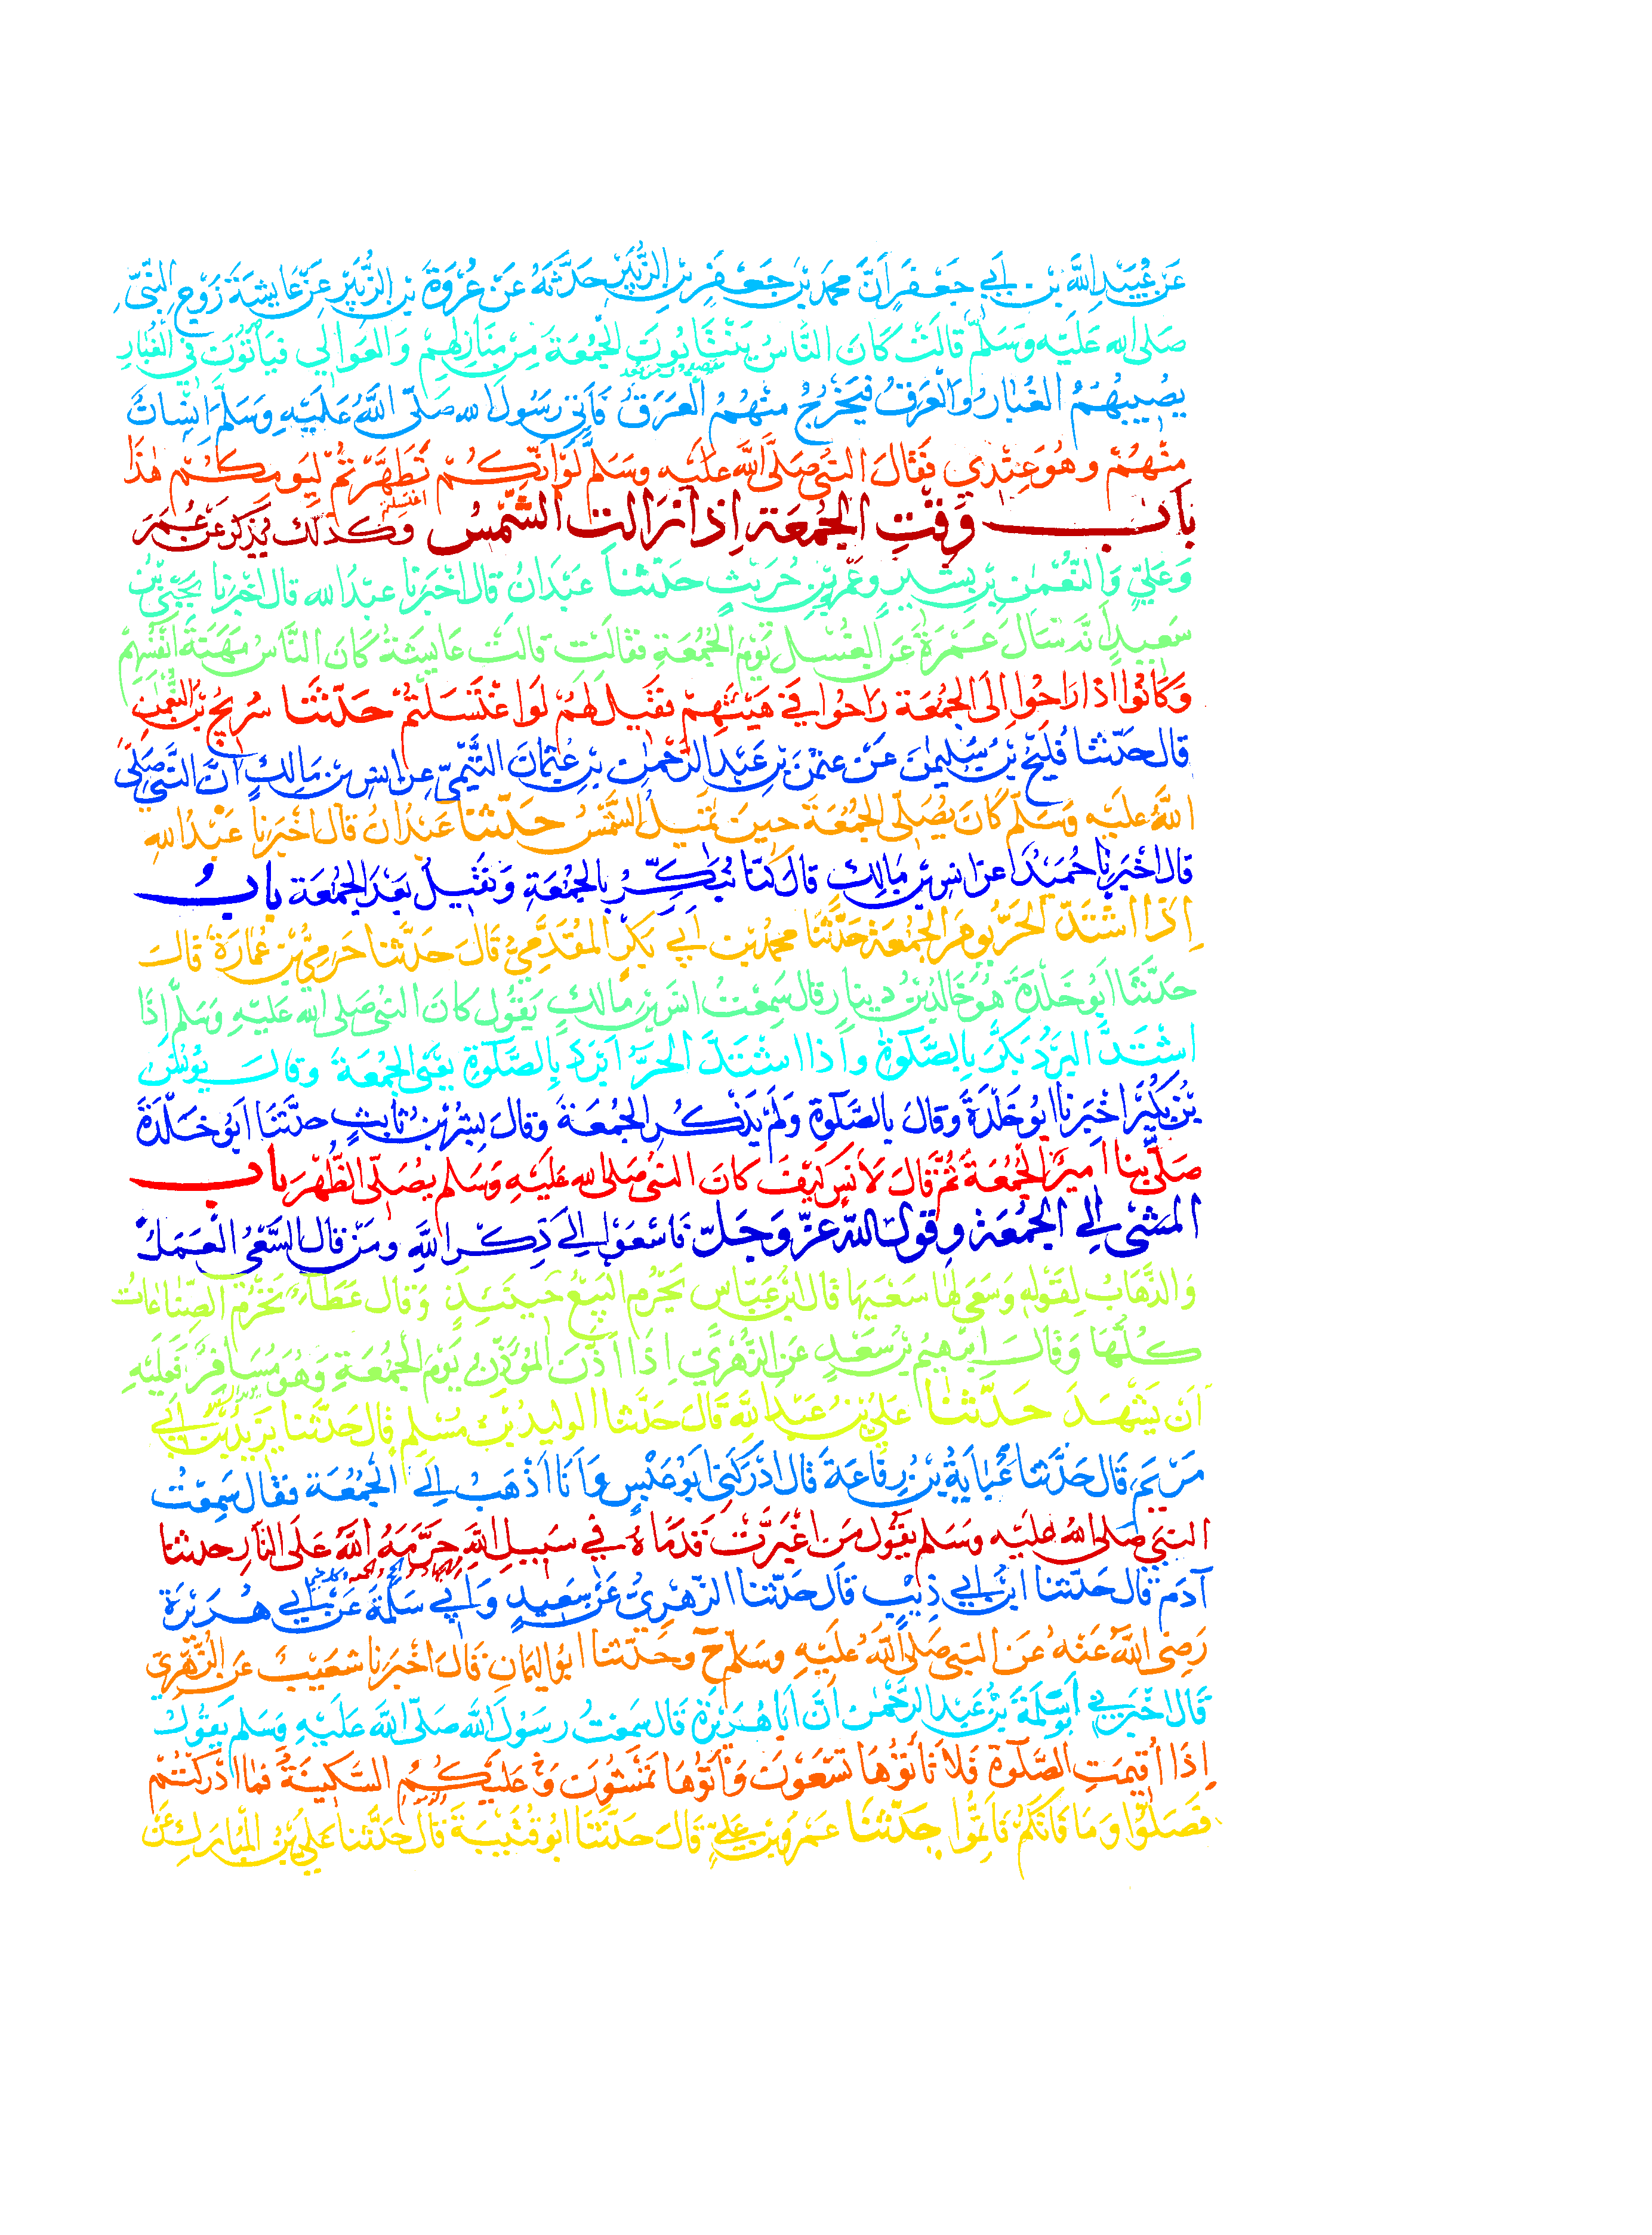 عَنْ عُبَيْدِ اللَّهِ بْنِ أَبِي جَعْفَرٍ أَنَّ مُحَمَّدَ بْنَ جَعْفَرِ بْنِ الزُّبَيْرِ حَدَّثَهُ عَنْ عُرْوَةَ بْنِ الزُّبَيْرِ عَنْ عَايِشَةَ زَوْجِ النَّبِيِّ
صَلَى الله عَلَيْهِ وَسَلَّمَ قَالَتْ كَانَ النَّاسُ يَنْتَابُونَ الْجُمُعَةَ مِنْ مَنَازِلِهِمْ وَالْعَوَالِي فَيَأْتُونَ فِي الْغُبَارِ
يُصِيبُهُمُ الْغُبَارُ وَالْعَرَقُ فَيَخْرُجُ مِنْهُمُ الْعَرَقُ فَأَتَى رَسُولَ الله صَلَّى اللَّهُ عَلَيْهِ وَسَلَّمَ إِنْسَانٌ
مِنْهُمْ وَهُوَ عِنْدِي فَقَالَ النَّبِيُّ صَلَّى اللَّهُ عَلَيْهِ وَسَلَّمَ لَوْ أَنَّكُمْ تَطَهَّرْتُمْ لِيَوْمِكُمْ هَذَا
بَابُ وَقْتِ الْجُمُعَةِ اِذَا زَالَتِ الشَّمْسُ وَكَذَلِكَ يُذْكَرُ عَنْ عُمَرَ
وَعَلِيٍّ وَالنُّعْمٰنِ بْنِ بَشِيرٍ وَعَمْرِو بْنِ حُرَيْثٍ حَدَّثَنَا عَبْدَانُ قَالَ اَخْبَرَنَا عَبْدُ الله قَالَ اَخْبَرَنَا يَحْيَى بْنُ
سَعِيدٍ اَنَّهُ سَاَلَ عَمْرَةَ عَنِ الْغُسْلِ يَوْمَ الْجُمُعَةِ فَقَالَتْ قَالَتْ عَايِشَةُ كَانَ النَّاسُ مَهَنَةَ اَنْفُسِهِمْ
وَكَانُوا اِذَا رَاحُوا اِلَى الْجُمُعَة رَاحُوا فِي هَيْئَتِهِمْ فَقِيلَ لَهُمْ لَوِ اغْتَسَلْتُمْ حَدَّثَنَا سُرَيْجُ بْنُ النُّعْمٰنِ
قَالَ حَدَّثَنَا فُلَيْحُ بْنُ سُلَيْمٰنَ عَنْ عُثْمٰنَ بْنِ عَبْدِ الرَّحْمٰنِ بْنِ عُثْمَانَ التَّيْمِيِّ عَنْ اَنَسِ بْنِ مَالِكٍ اَنَّ النَّبِيَّ صَلَّى
اللَّهُ عَلَيْهِ وَسَلَّمَ كَانَ يُصَلِّى الْجُمُعَةَ حِينَ تَمِيلُ الشَّمْسُ حَدَّثَنَا عَبْدَانُ قَالَ اَخْبَرَنَا عَبْدُ اللهِ
قَالَ اَخْبَرَنَا حُمَيْدٌ عَنْ اَنَسِ بْنِ مَالِكٍ قَالَ كُنَّا نُبَكِّرُ بِالْجُمُعَةِ وَنَقِيلُ بَعْدَ الْجُمُعَةِ بَابُ
اِذَا اشْتَدَّ الْحَرُّ يَوْمَ الْجُمُعَةِ حَدَّثَنَا مُحَمَّدُ بْنُ اَبِي بَكْرٍ الْمُقَدَّمِيُّ قَالَ حَدَّثَنَا حَرَمِيُّ بْنُ عُمَارَةَ قَالَ
حَدَّثَنَا اَبُو خَلْدَةَ هُوَ خَالِدُ بْنُ دِينَارٍ قَالَ سَمِعْتُ اَنَسَ بْنَ مَالِكٍ يَقُولُ كَانَ النَّبِيُّ صَلَى الله عَلَيْهِ وَسَلَّمَ اِذَا
اشْتَدَّ الْبَرْدُ بَكَّرَ بِالصَّلٰوةِ وَاِذَا اشْتَدَّ الْحَرُّ اَبْرَدَ بِالصَّلٰوةِ يَعْنِي الْجُمُعَةَ وَقَالَ يُونُسُ
بْنُ بُكَيْرٍ اَخْبَرَنَا اَبُو خَلْدَةَ وَقَالَ بِالصَّلٰوةِ وَلَمْ يَذْكُرِ الْجُمُعَةَ وَقَالَ بِشْرُ بْنُ ثَابِتٍ حَدَّثَنَا اَبُو خَلْدَةَ
صَلَّى بِنَا اَمِيرٌ الْجُمُعَةَ ثُمَّ قَالَ لِاَنَسٍ كَيْفَ كَانَ النَّبِيُّ صَلَى الله عَلَيْهِ وَسَلَّمَ يُصَلِّى الظُّهْرَ بَابُ
الْمَشْىِ اِلَى الْجُمُعَةِ وَقَوْلِ اللَّهِ عَزَّ وَجَلَّ فَاسْعَوْا اِلَى ذِكْرِ اللَّهِ وَمَنْ قَالَ السَّعْىُ الْعَمَلُ
وَالذَّهَابُ لِقَوْلِهِ وَسَعَى لَهَا سَعْيَهَا قَالَ ابْنُ عَبَّاسٍ يَحْرُمُ الْبَيْعُ حِينَئِذٍ وَقَالَ عَطَاءٌ تَحْرُمُ الصِّنَاعَاتُ
كُلُّهَا وَقَالَ اِبْرٰهِيمُ بْنُ سَعْدٍ عَنِ الزُّهْرِيِّ اِذَا اَذَّنَ الْمُؤَذِّنُ يَوْمَ الْجُمُعَةِ وَهُوَ مُسَافِرٌ فَعَلَيْهِ
اَنْ يَشْهَدَ حَدَّثَنَا عَلِيُّ بْنُ عَبْدِ اللَّهِ قَالَ حَدَّثَنَا الْوَلِيدُ بْنُ مُسْلِمٍ قَالَ حَدَّثَنَا يَزِيدُ بْنُ اَبِي
مَرْيَمَ قَالَ حَدَّثَنَا عَبَايَةُ بْنُ رِفَاعَةَ قَالَ اَدْرَكَنِي اَبُو عَبْسٍ وَاَنَا اَذْهَبُ اِلَى الْجُمُعَةِ فَقَالَ سَمِعْتُ
النَّبِيَّ صَلى اللهُ عَلَيْهِ وَسَلَّمَ يَقُولُ مَنِ اغْبَرَّتْ قَدَمَاهُ فِي سَبِيلِ اللَّهِ حَرَّمَهُ اللَّهُ عَلَى النَّارِ حَدَّثَنَا
آدَمُ قَالَ حَدَّثَنَا ابْنُ اَبِي ذِئْبٍ قَالَ حَدَّثَنَا الزُّهْرِيُّ عَنْ سَعِيدٍ وَاَبِي سَلَمَةَ عَنْ اَبِي هُرَيْرَةَ
رَضِيَ اللَّهُ عَنْهُ عَنِ النَّبِيِّ صَلَّى اللَّهُ عَلَيْهِ وَسَلَّمَ ح وَحَدَّثَنَا اَبُو الْيَمَانِ قَالَ اَخْبَرَنَا شُعَيْبٌ عَنِ الزُّهْرِيِّ
قَالَ اَخْبَرَنِي اَبُو سَلَمَةَ بْنُ عَبْدِ الرَّحْمٰنِ اَنَّ اَبَا هُرَيْرَةَ قَالَ سَمِعْتُ رَسُولَ اللَّهِ صَلَّى اللَّهُ عَلَيْهِ وَسَلَّمَ يَقُولُ
اِذَا اُقِيمَتِ الصَّلٰوةُ فَلَا تَأْتُوهَا تَسْعَوْنَ وَأْتُوهَا تَمْشُونَ وَعَلَيْكُمُ السَّكِينَةُ فَمَا اَدْرَكْتُمْ
فَصَلُّوا وَمَا فَاتَكُمْ فَاَتِمُّوا حَدَّثَنَا عَمْرُو بْنُ عَلِيٍّ قَالَ حَدَّثَنَا اَبُو قُتَيْبَةَ قَالَ حَدَّثَنَا عَلِيُّ بْنُ الْمُبَارَكِ عَنْ